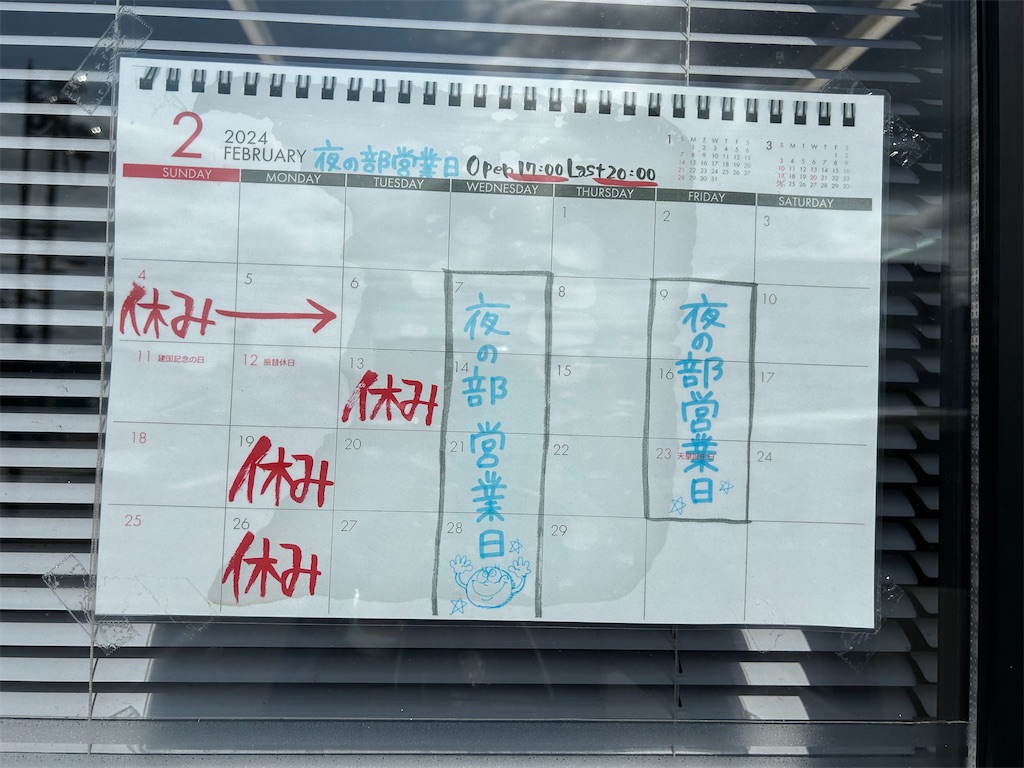 2 2024
FEBRUARY 夜の部営業日 Open 17:00 Last 20:00
SUNDAY MONDAY TUESDAY WEDNESDAY THURSDAY FRIDAY SATURDAY
1 2 3
4 5 6 7 8 9 10
休み
11 建国記念の日 12 振替休日 13 14 15 16 17
休み
18 19 20 21 22 23 24
休み
25 26 27 28 29
休み
夜の部営業日
夜の部営業日